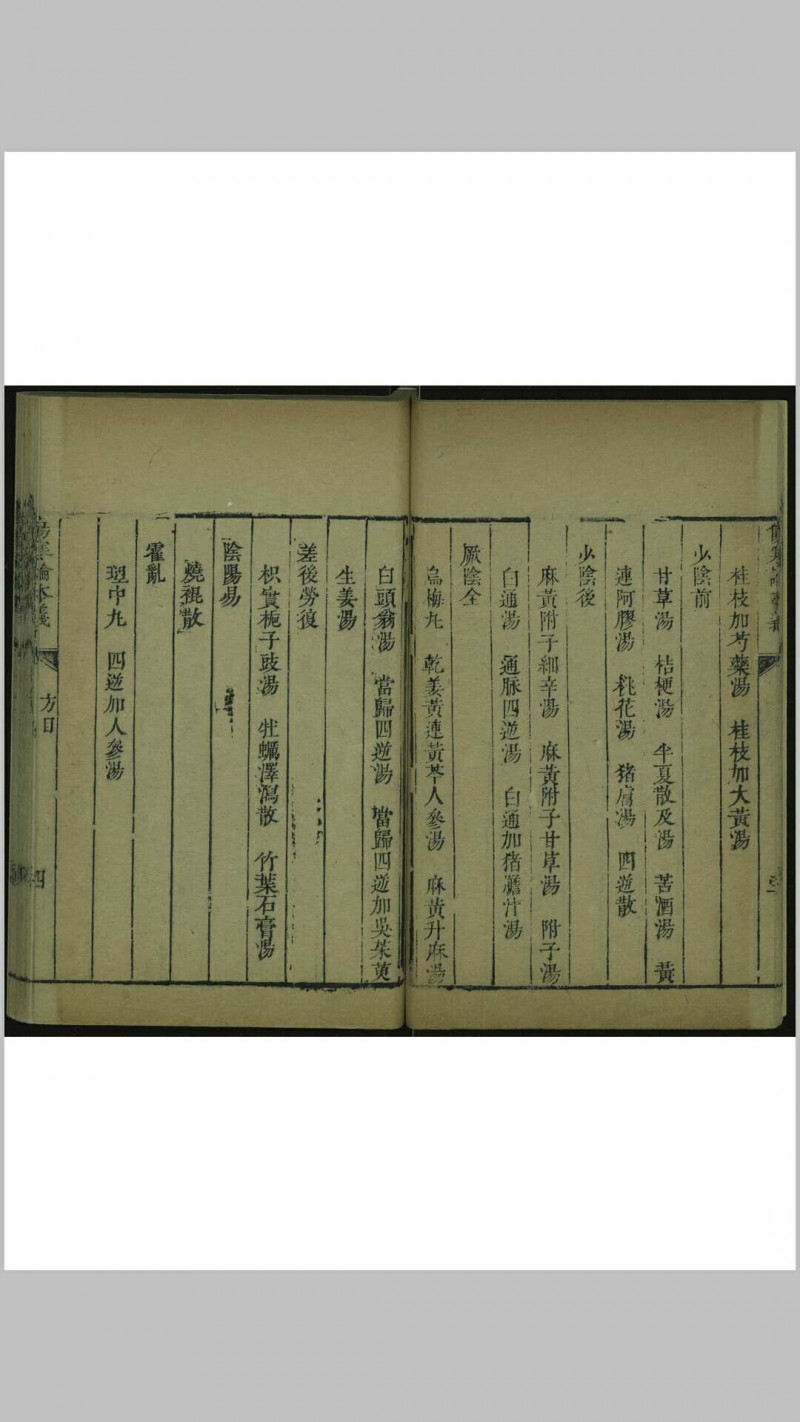 桂枝加芍藥湯 桂枝加大黃湯
少陰前
甘草湯 桔梗湯 半夏散及湯 苦酒湯 黃
連阿膠湯 桃花湯 猪膚湯 四逆散
少陰後
麻黃附子細辛湯 麻黃附子甘草湯 附子湯
白通湯 通脉四逆湯 白通加猪膽汁湯
厥陰全
烏梅丸 乾姜黃連黃芩人參湯 麻黃升麻湯
白頭翁湯 當歸四逆湯 當歸四逆加吳茱萸
生姜湯
差後勞復
枳實梔子豉湯 牡蠣澤瀉散 竹葉石膏湯
陰陽易
燒裩散
霍亂
理中丸 四逆加人參湯
傷寒論本義
方目
四